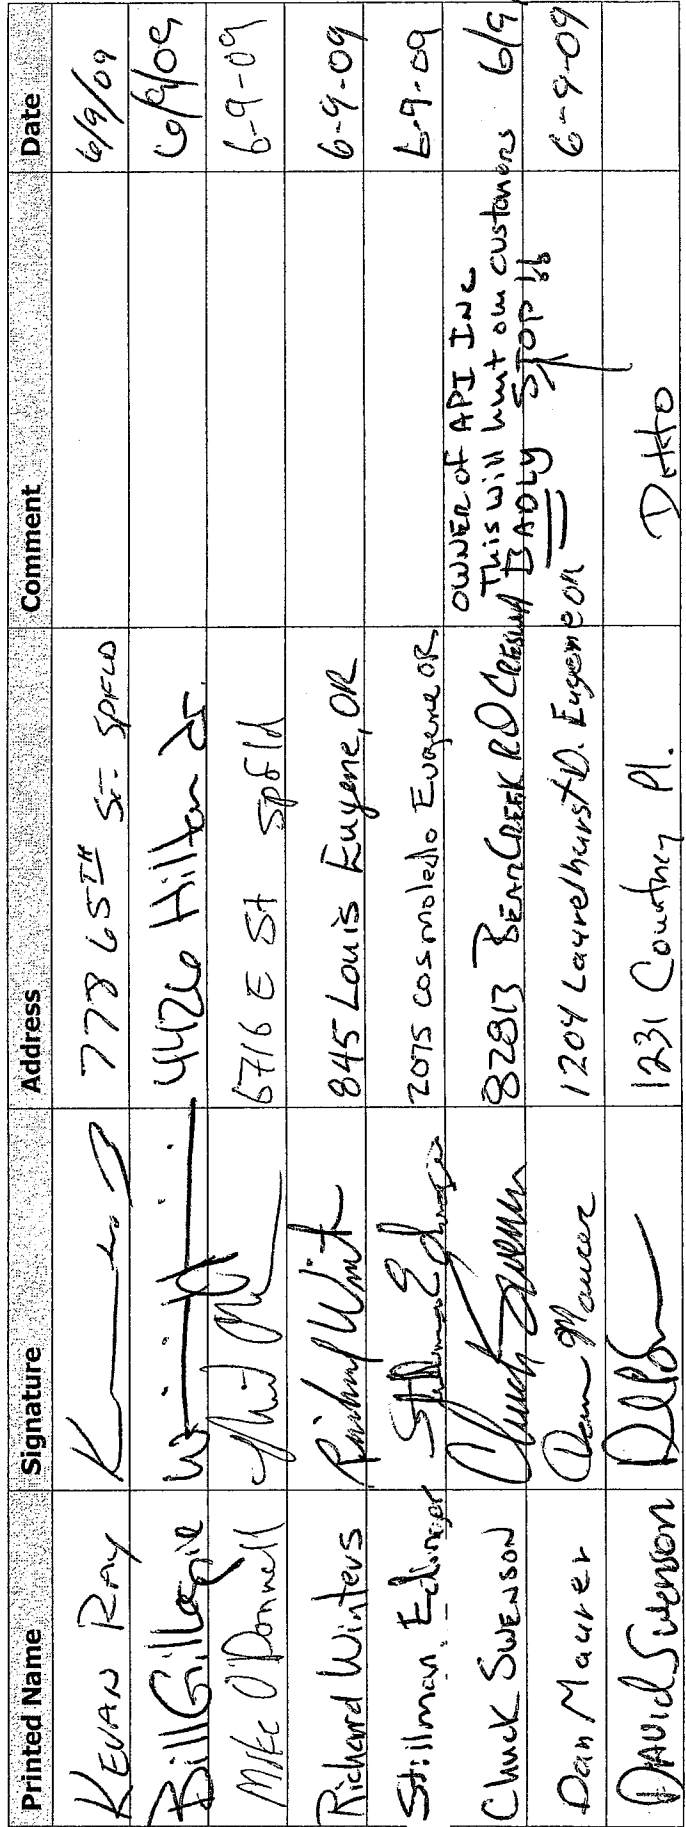 Printed Name Signature Address Comment Date
KEVAN RAY 778 65TH ST. SPFLD 6/9/09
Bill Gillogie 4426 Hillton Dr. 6/9/09
Mike O'Donnell 6716 E St Spfld 6-9-09
Richard Winters 845 Louis Eugene, OR 6-9-09
Stillman Edinger 2075 Cosmoledo Eugene OR 6-9-09
Chuck SWENSON 82813 BEAR CREEK RD CRESWELL OWNER of API INC
This will hurt our customers 6/9
BADLY STOP it
Dan Maurer 1204 Laurelhurst D. Eugene OR 6-9-09
DAVID Swenson 1231 Courtney Pl. Ditto